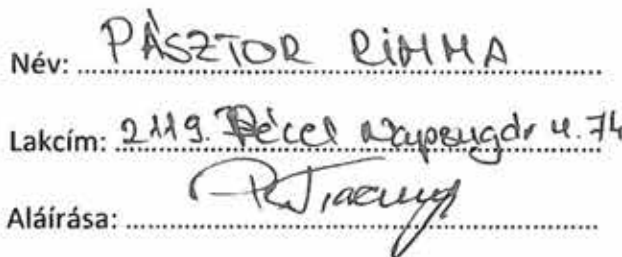 Név: PÁSZTOR RIMMA
Lakcím: 2119. Pécel Napsugár u. 74
Aláírása: